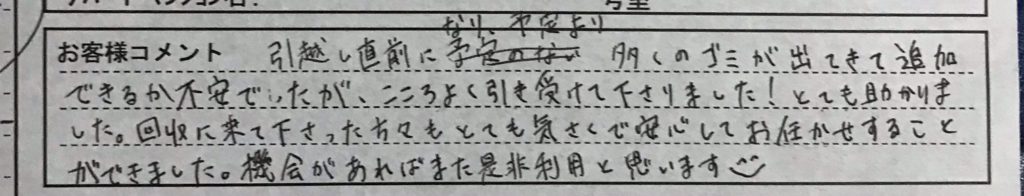 号室
なり、予定より
お客様コメント 引越し直前に予定のない 多くのゴミが出てきて追加
できるか不安でしたが、こころよく引き受けて下さりました！とても助かりま
した。回収に来て下さった方々もとても気さくで安心してお任せすること
ができました。機会があればまた是非利用と思います